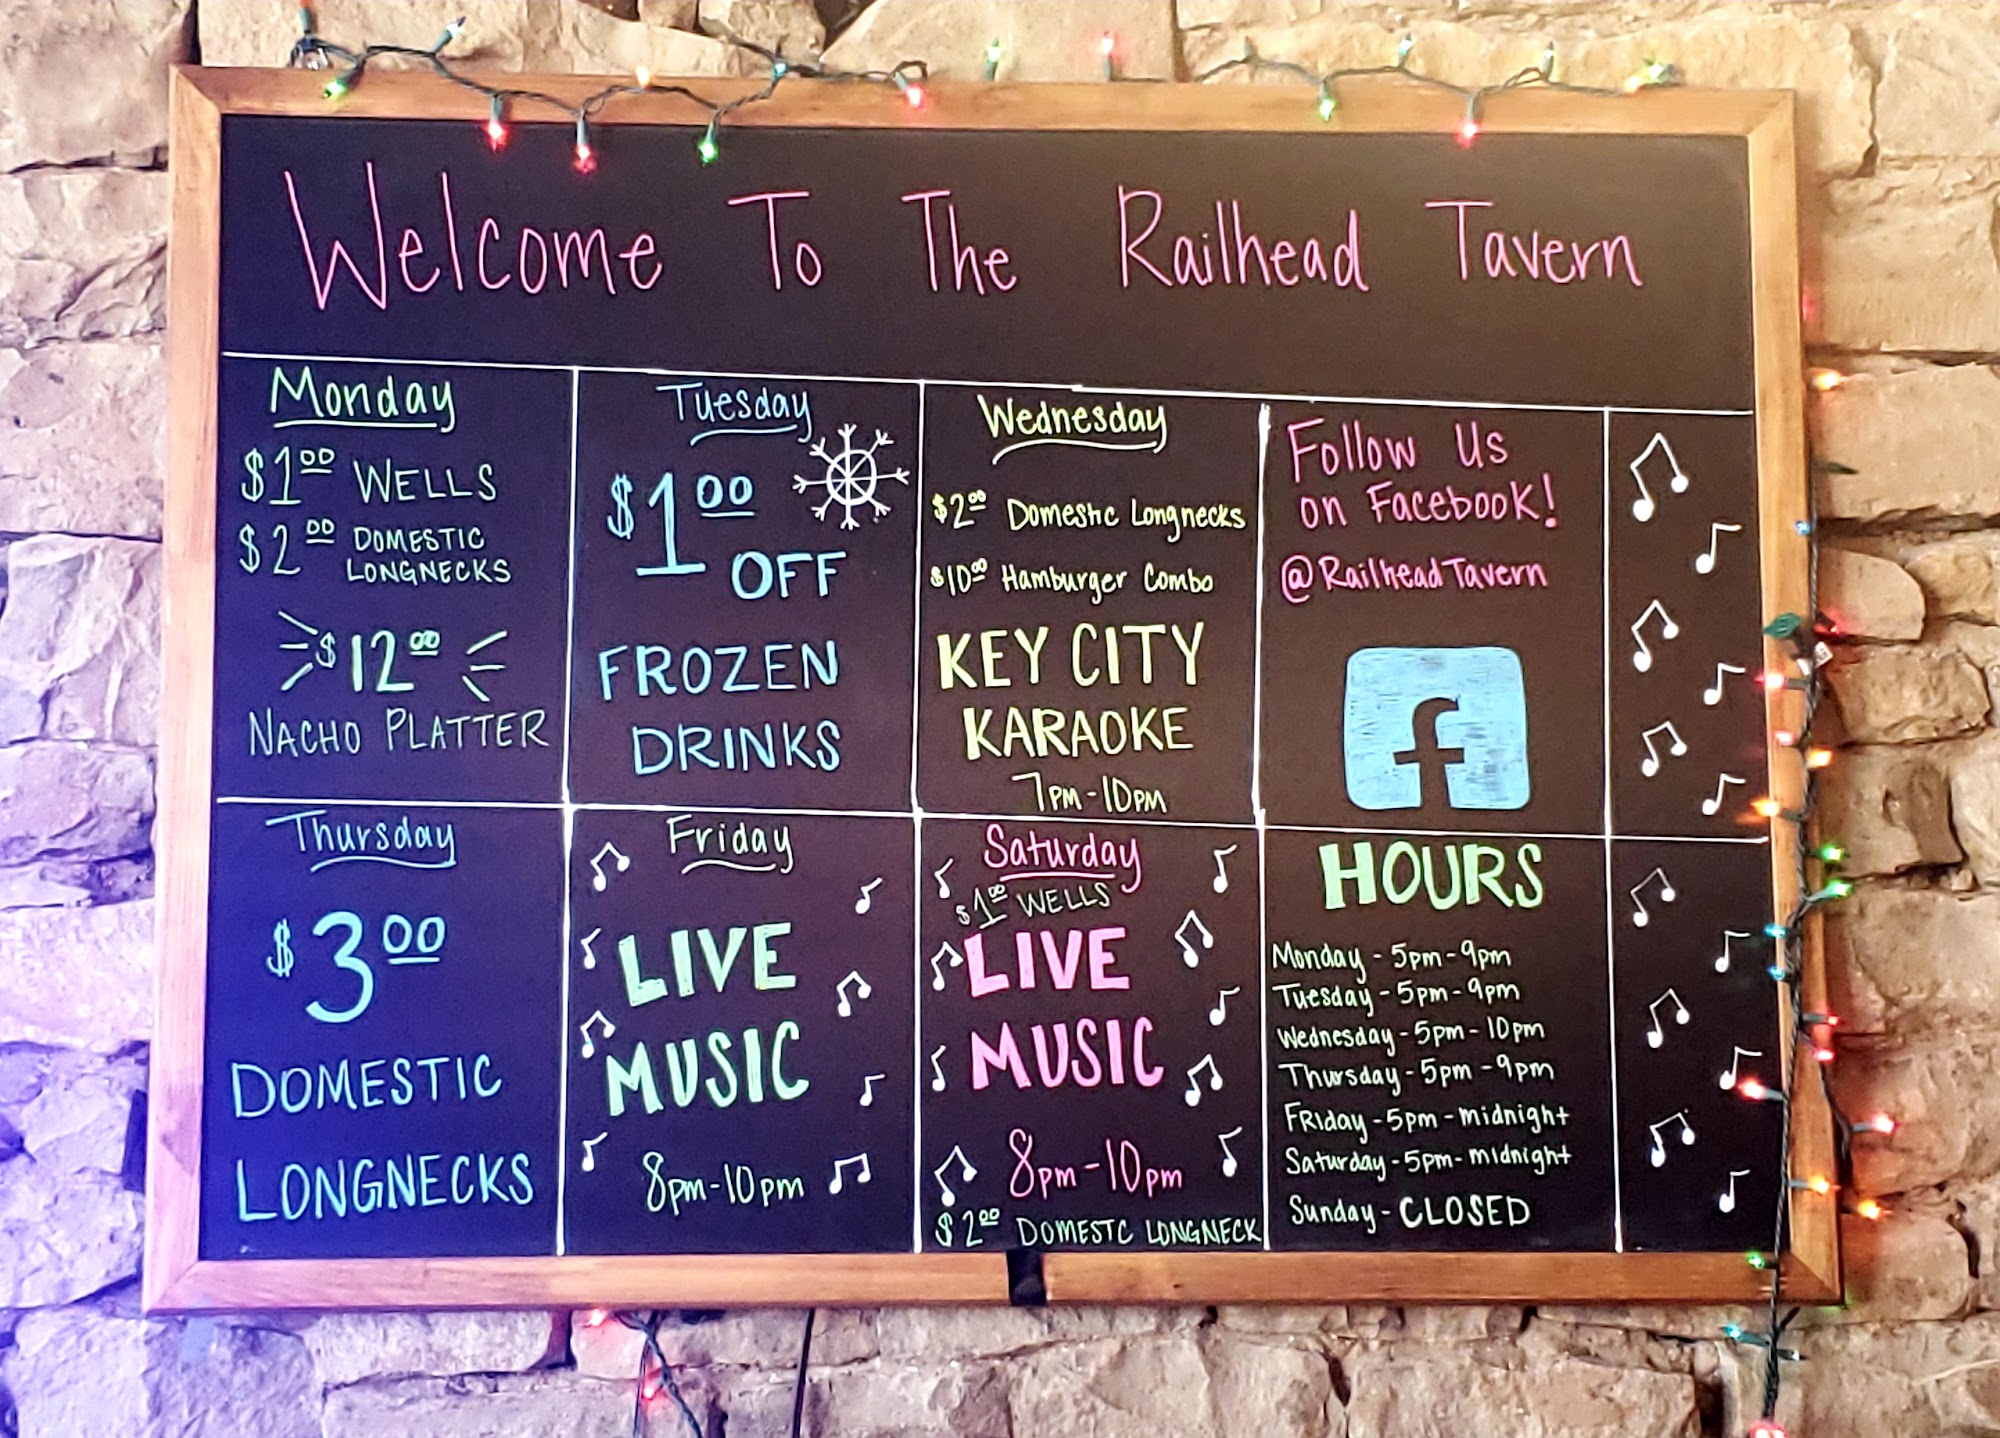 Welcome To The Railhead Tavern
Monday
$1.00 WELLS
$2.00 DOMESTIC
LONGNECKS
$12.00
NACHO PLATTER
Tuesday
$1.00
OFF
FROZEN
DRINKS
Wednesday
$2.00 Domestic Longnecks
$10.00 Hamburger Combo
KEY CITY
KARAOKE
7PM-10PM
Follow Us
on Facebook!
@RailheadTavern
f
Thursday
$3.00
DOMESTIC
LONGNECKS
Friday
LIVE
MUSIC
8pm-10pm
Saturday
$1.00 WELLS
LIVE
MUSIC
8pm-10pm
$2.00 DOMESTC LONGNECK
HOURS
Monday - 5pm - 9pm
Tuesday - 5pm - 9pm
Wednesday - 5pm - 10pm
Thursday - 5pm - 9pm
FRIday - 5pm - midnight
Saturday - 5pm - midnight
Sunday - CLOSED